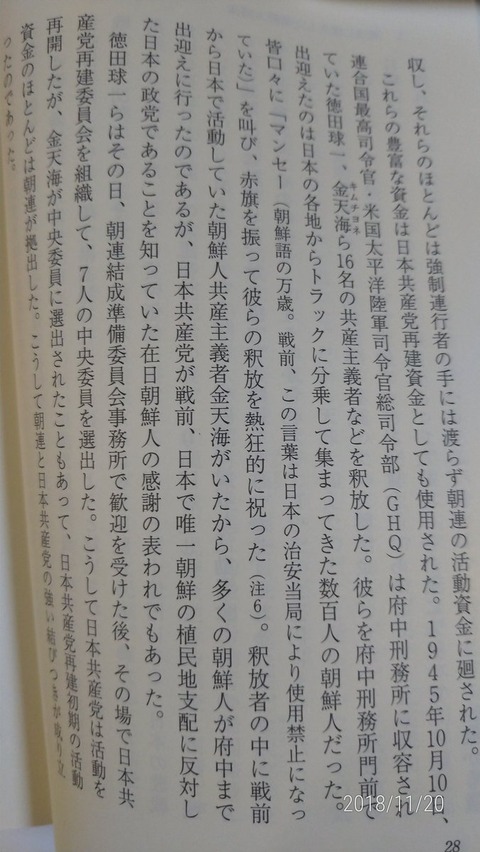 収し、それらのほとんどは強制連行者の手には渡らず朝連の活動資金に廻された。
これらの豊富な資金は日本共産党再建資金としても使用された。1945年10月10日、
連合国最高司令官・米国太平洋陸軍司令官総司令部（GHQ）は府中刑務所に収容され
ていた徳田球一、金天海ら16名の共産主義者などを釈放した。彼らを府中刑務所門前で
キムチョネ
出迎えたのは日本の各地からトラックに分乗して集まってきた数百人の朝鮮人だった。
皆口々に「マンセー（朝鮮語の万歳。戦前、この言葉は日本の治安当局により使用禁止になっ
ていた）」を叫び、赤旗を振って彼らの釈放を熱狂的に祝った（注6）。釈放者の中に戦前
から日本で活動していた朝鮮人共産主義者金天海がいたから、多くの朝鮮人が府中まで
出迎えに行ったのであるが、日本共産党が戦前、日本で唯一朝鮮の植民地支配に反対し
た日本の政党であることを知っていた在日朝鮮人の感謝の表われでもあった。
徳田球一らはその日、朝連結成準備委員会事務所で歓迎を受けた後、その場で日本共
産党再建委員会を組織して、7人の中央委員を選出した。こうして日本共産党は活動を
再開したが、金天海が中央委員に選出されたこともあって、日本共産党再建初期の活動
資金のほとんどは朝連が拠出した。こうして朝連と日本共産党の強い結びつきが成り立
ったのであった。
28
2018/11/20